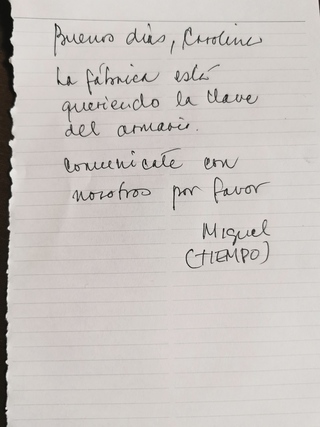 Buenos días, Carolina
La fábrica está
queriendo la clave
del armario.
Comunicate con
nosotros por favor
Miguel
(TIEMPO)